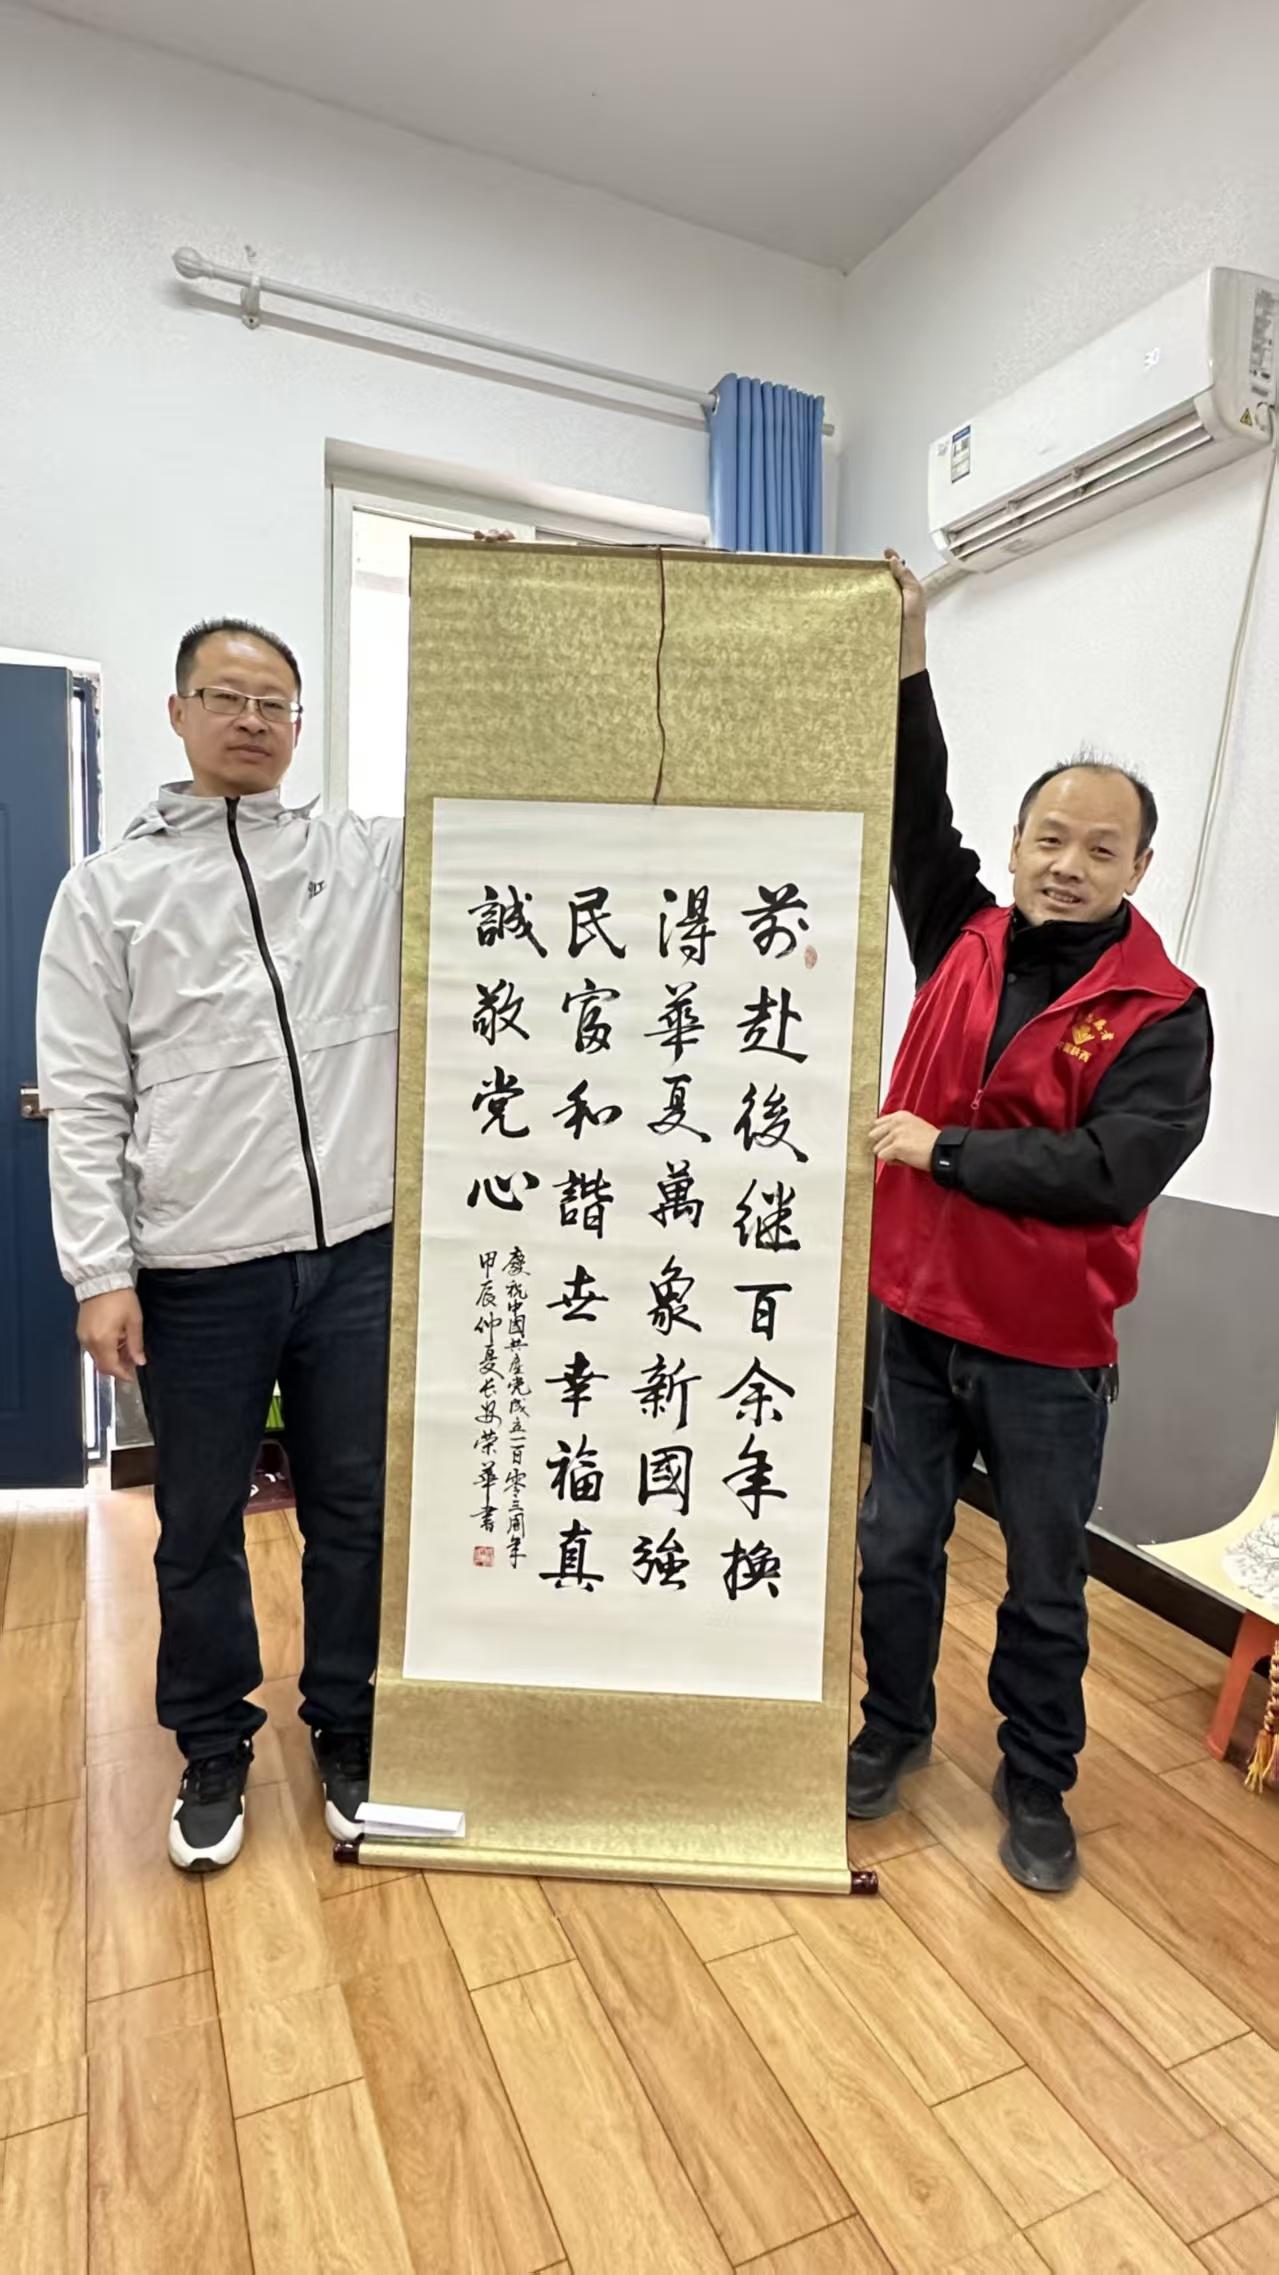 前赴後继百余年换
得華夏萬象新國強
民富和諧世幸福真
誠敬党心
慶祝中國共產党成立一百零三周年
甲辰仲夏长安荣華書